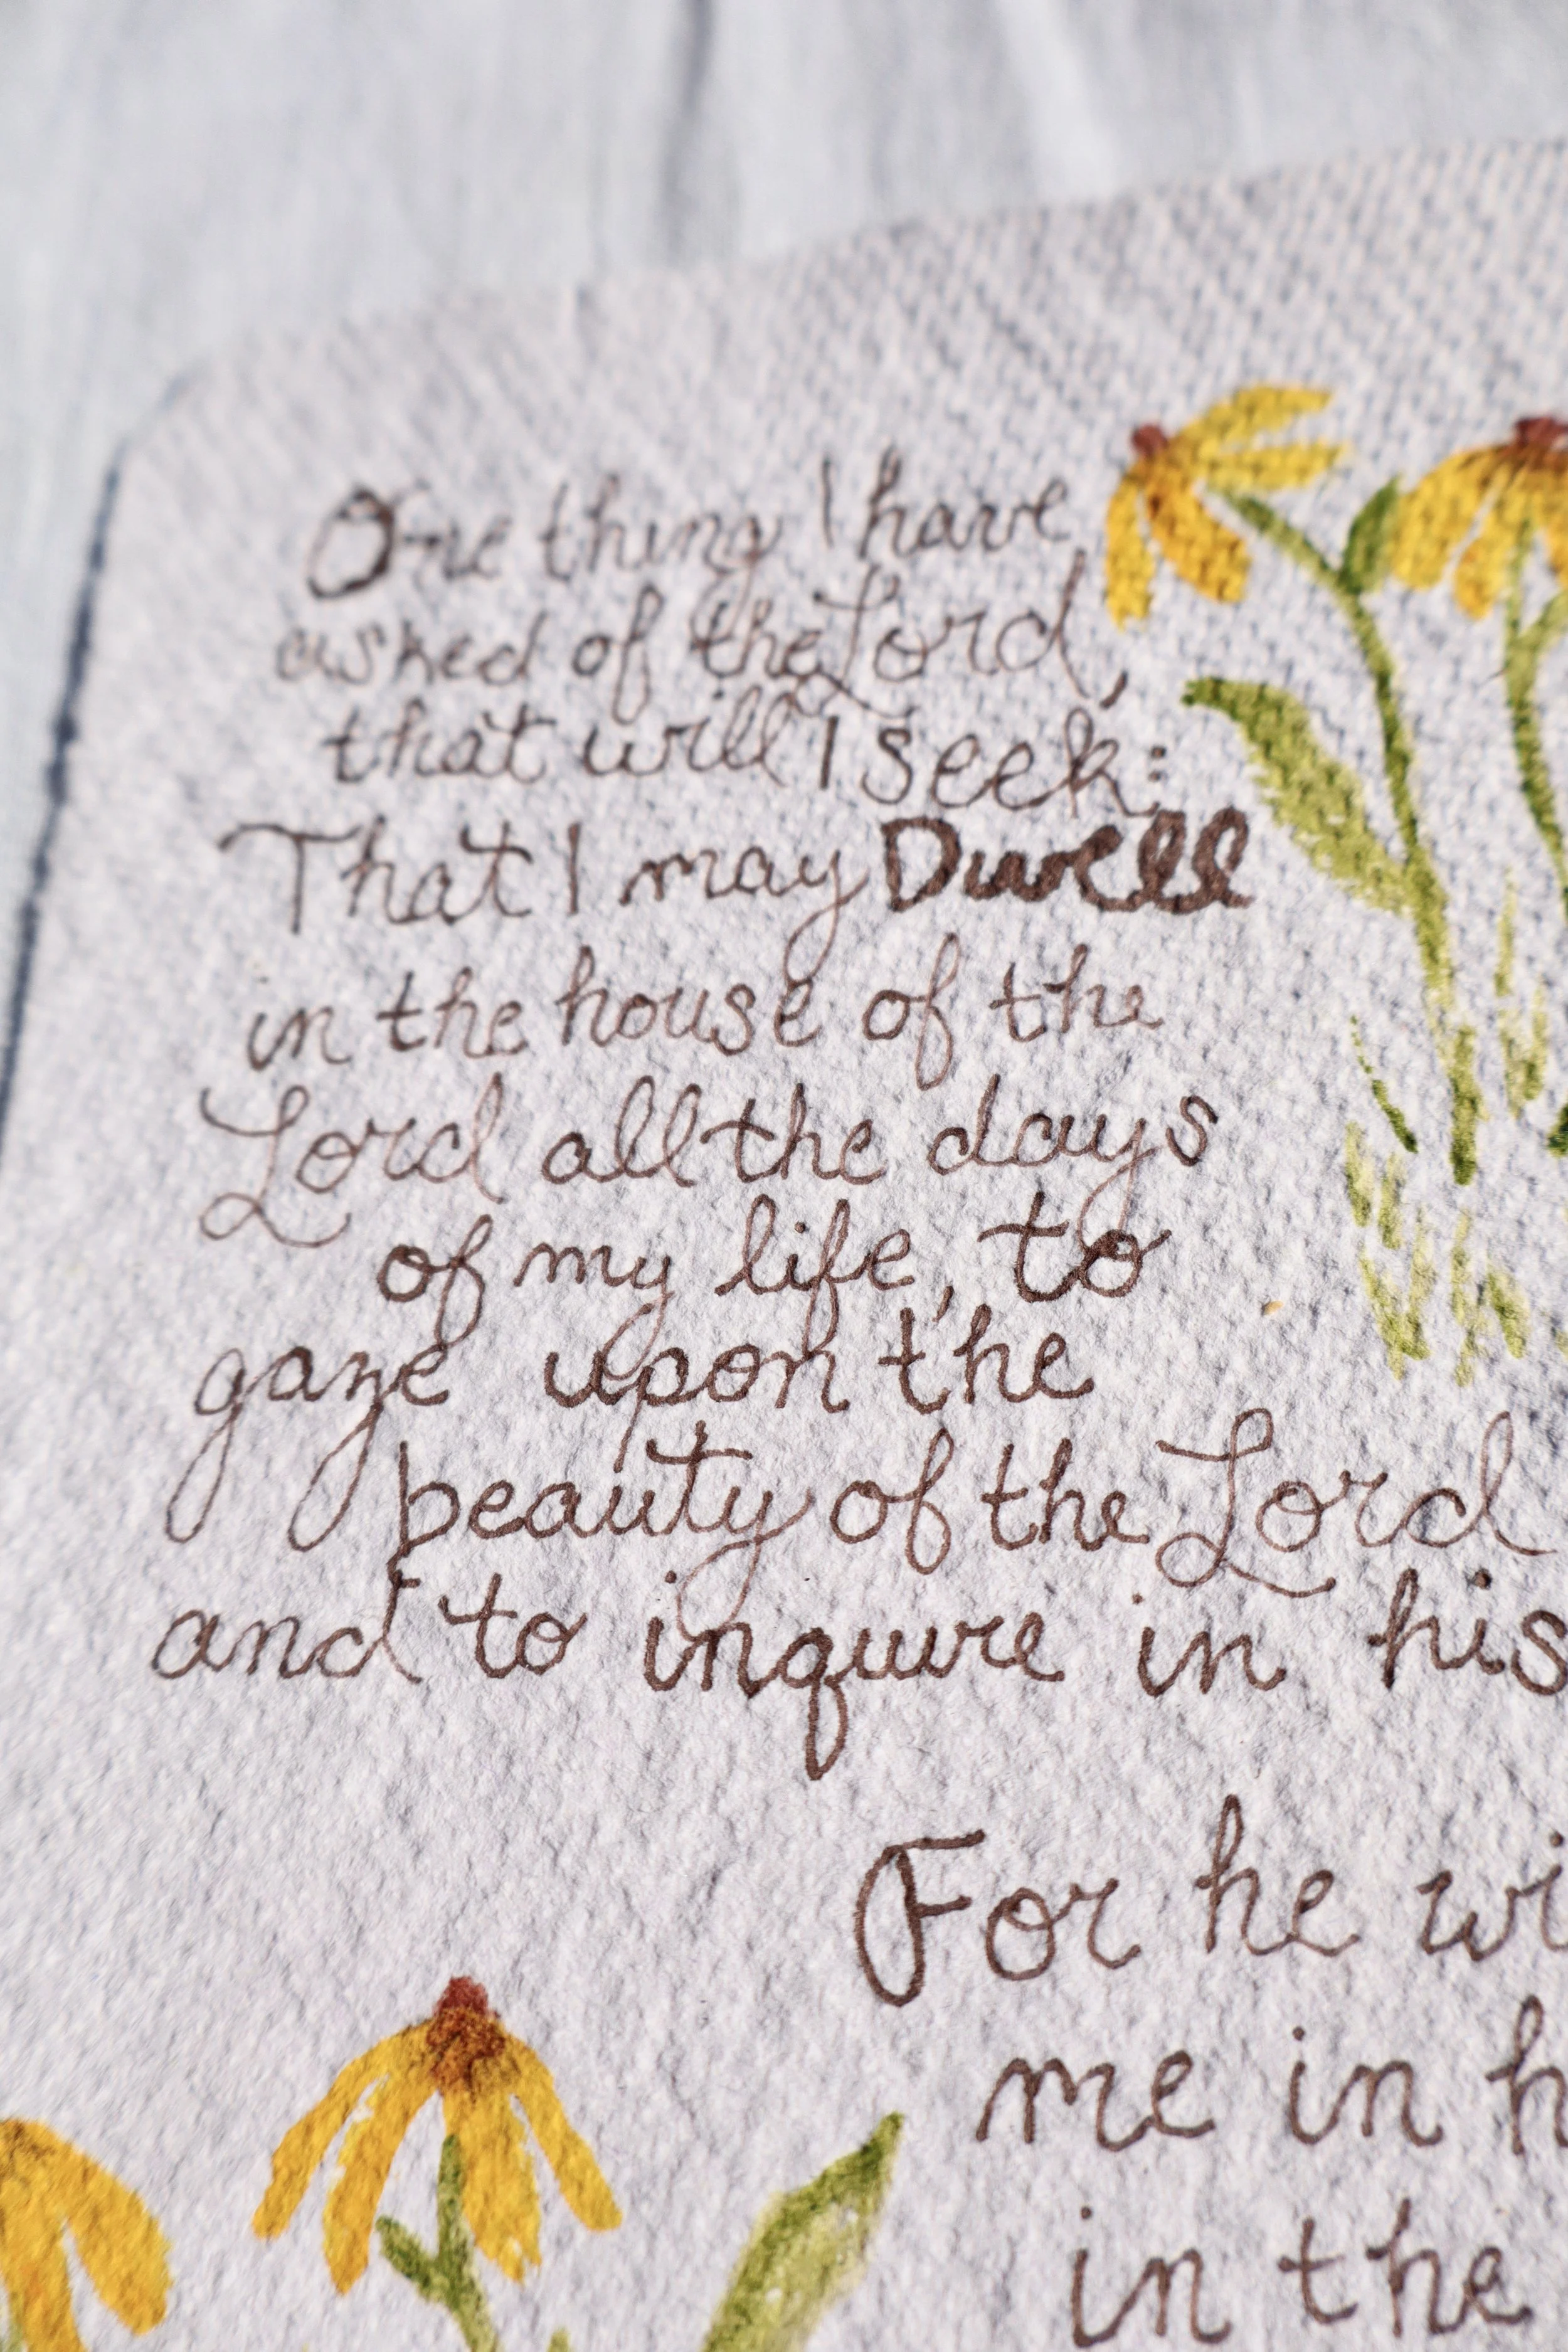 One thing I have
asked of the Lord,
that will I seek:
That I may Dwell
in the house of the
Lord all the days
of my life, to
gaze upon the
beauty of the Lord
and to inquire in his
For he wi
me in h
in the